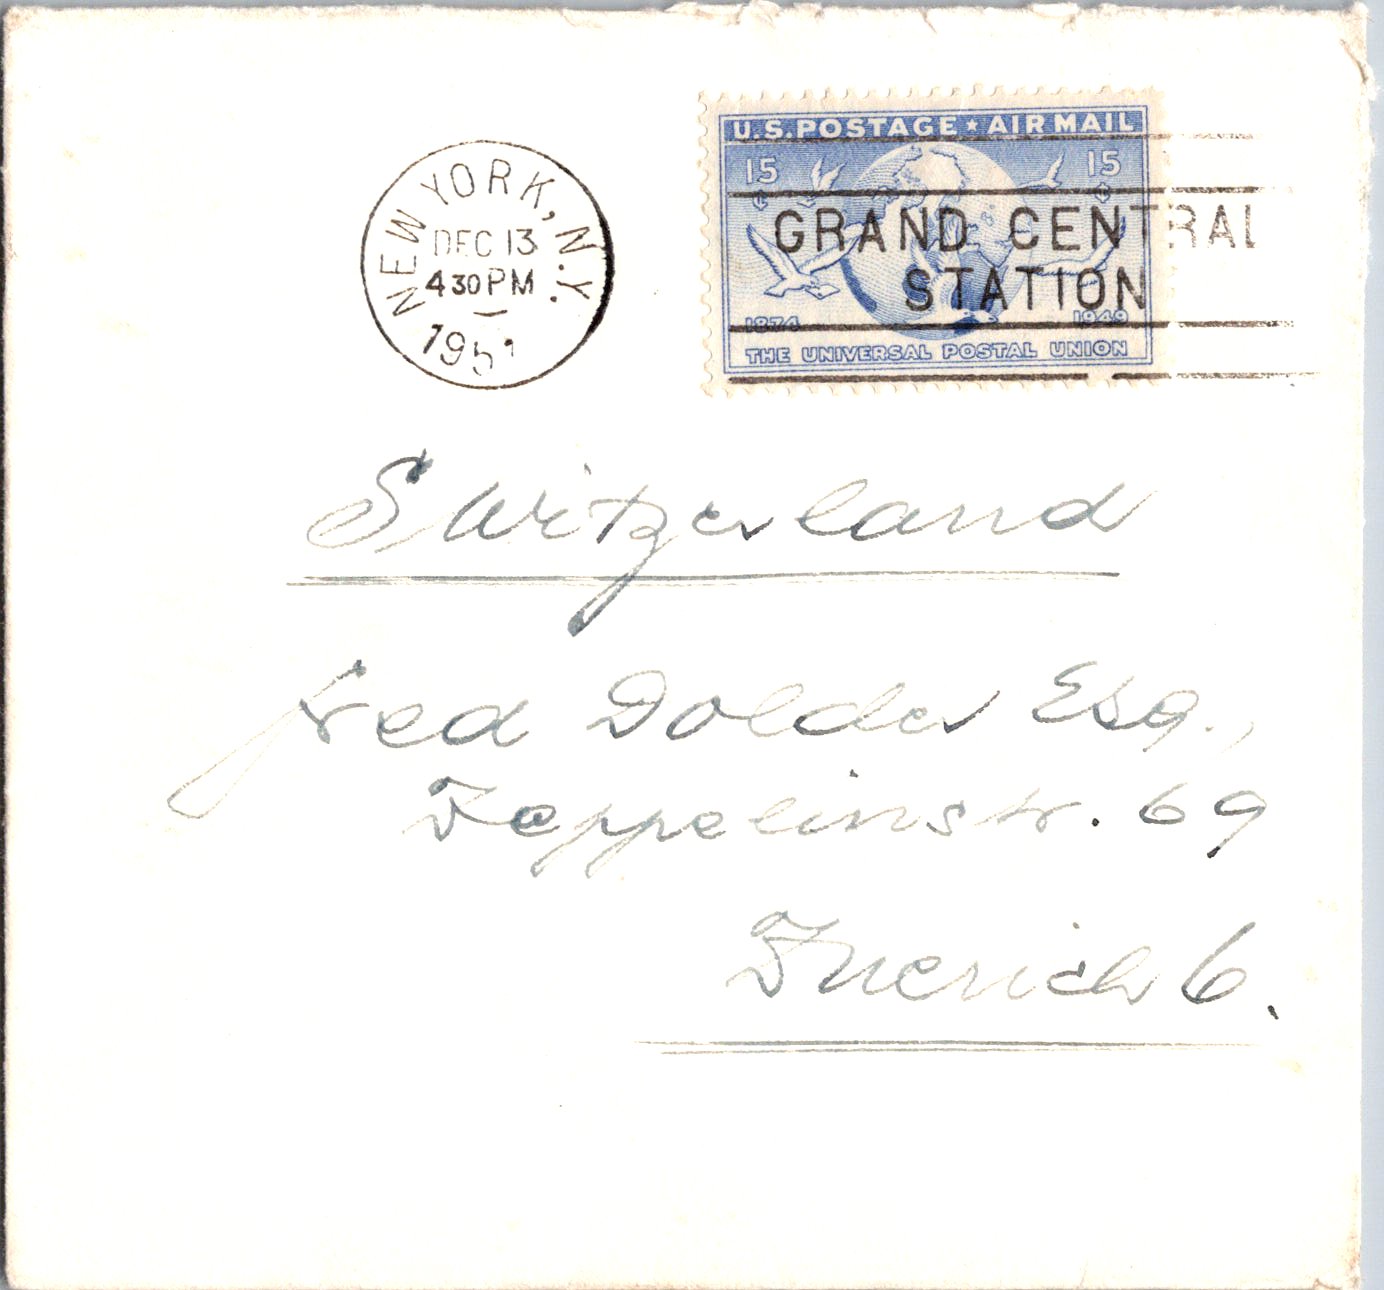 NEW YORK, N.Y.
DEC 13
4 30 PM
1951
U.S. POSTAGE ★ AIR MAIL
15¢ 15¢
GRAND CENTRAL
STATION
1874 1949
THE UNIVERSAL POSTAL UNION
Switzerland
Fred Dolder Esq.,
Zeppelinstr. 69
Zuerich 6.